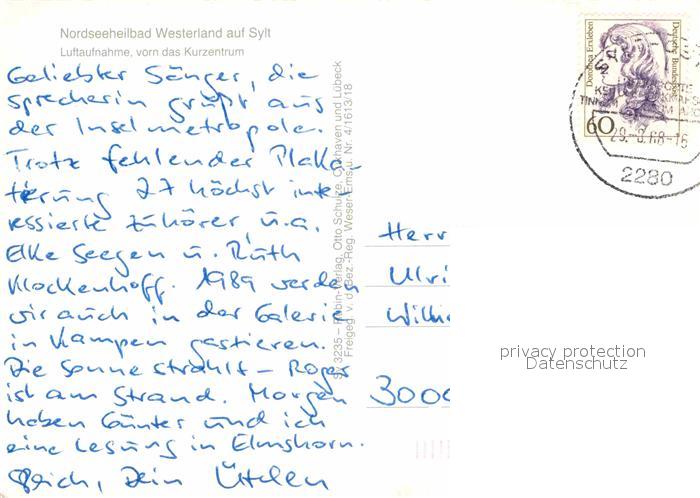 Nordseeheilbad Westerland auf Sylt
Luftaufnahme, vorn das Kurzentrum
Geliebter Sänger, die
sprecherin grüßt aus
der Inselmetropole.
Trotz fehlender Plaka-
tierung 27 höchst inte-
ressierte Zuhörer, u.a.
Elke Seegen u. Ruth
Klockenhoff. 1989 werden
wir auch in der Galerie
in Kampen gastieren.
Die Sonne strahlt – Roger
ist am Strand. Morgen
haben Günter und ich
eine Lesung in Elmshorn.
Dein
SY 3235 – Rubin-Verlag, Otto Schulze, Cuxhaven und Lübeck
Freigeg. v. d. Bez.-Reg. Weser-Ems u. Nr. 4/1613/18
Herr
Ulri
300
Dorothea Erxleben
Deutsche Bundespost
60
2280
privacy protection
Datenschutz